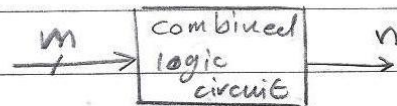 m
combined
logic
circuit
n